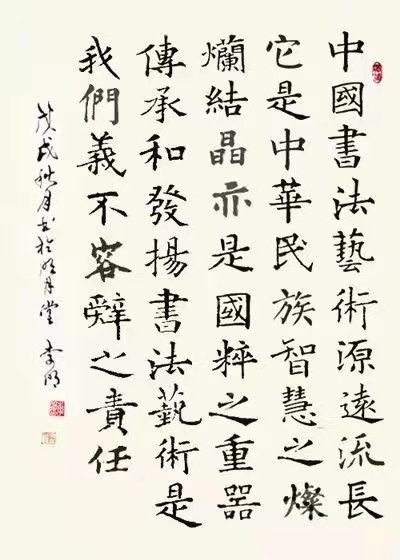 中國書法藝術源遠流長
它是中華民族智慧之燦
爛結晶亦是國粹之重器
傳承和發揚書法藝術是
我們義不容辭之責任
戊戌秋月書於明月堂 李明